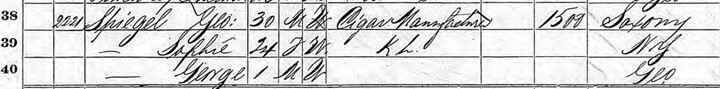 38 2221 Spiegel Geo: 30 M W Cigar Manufacturer 1500 Saxony
39 — Sophie 24 F W K h. NY
40 — George 1 M W Geo